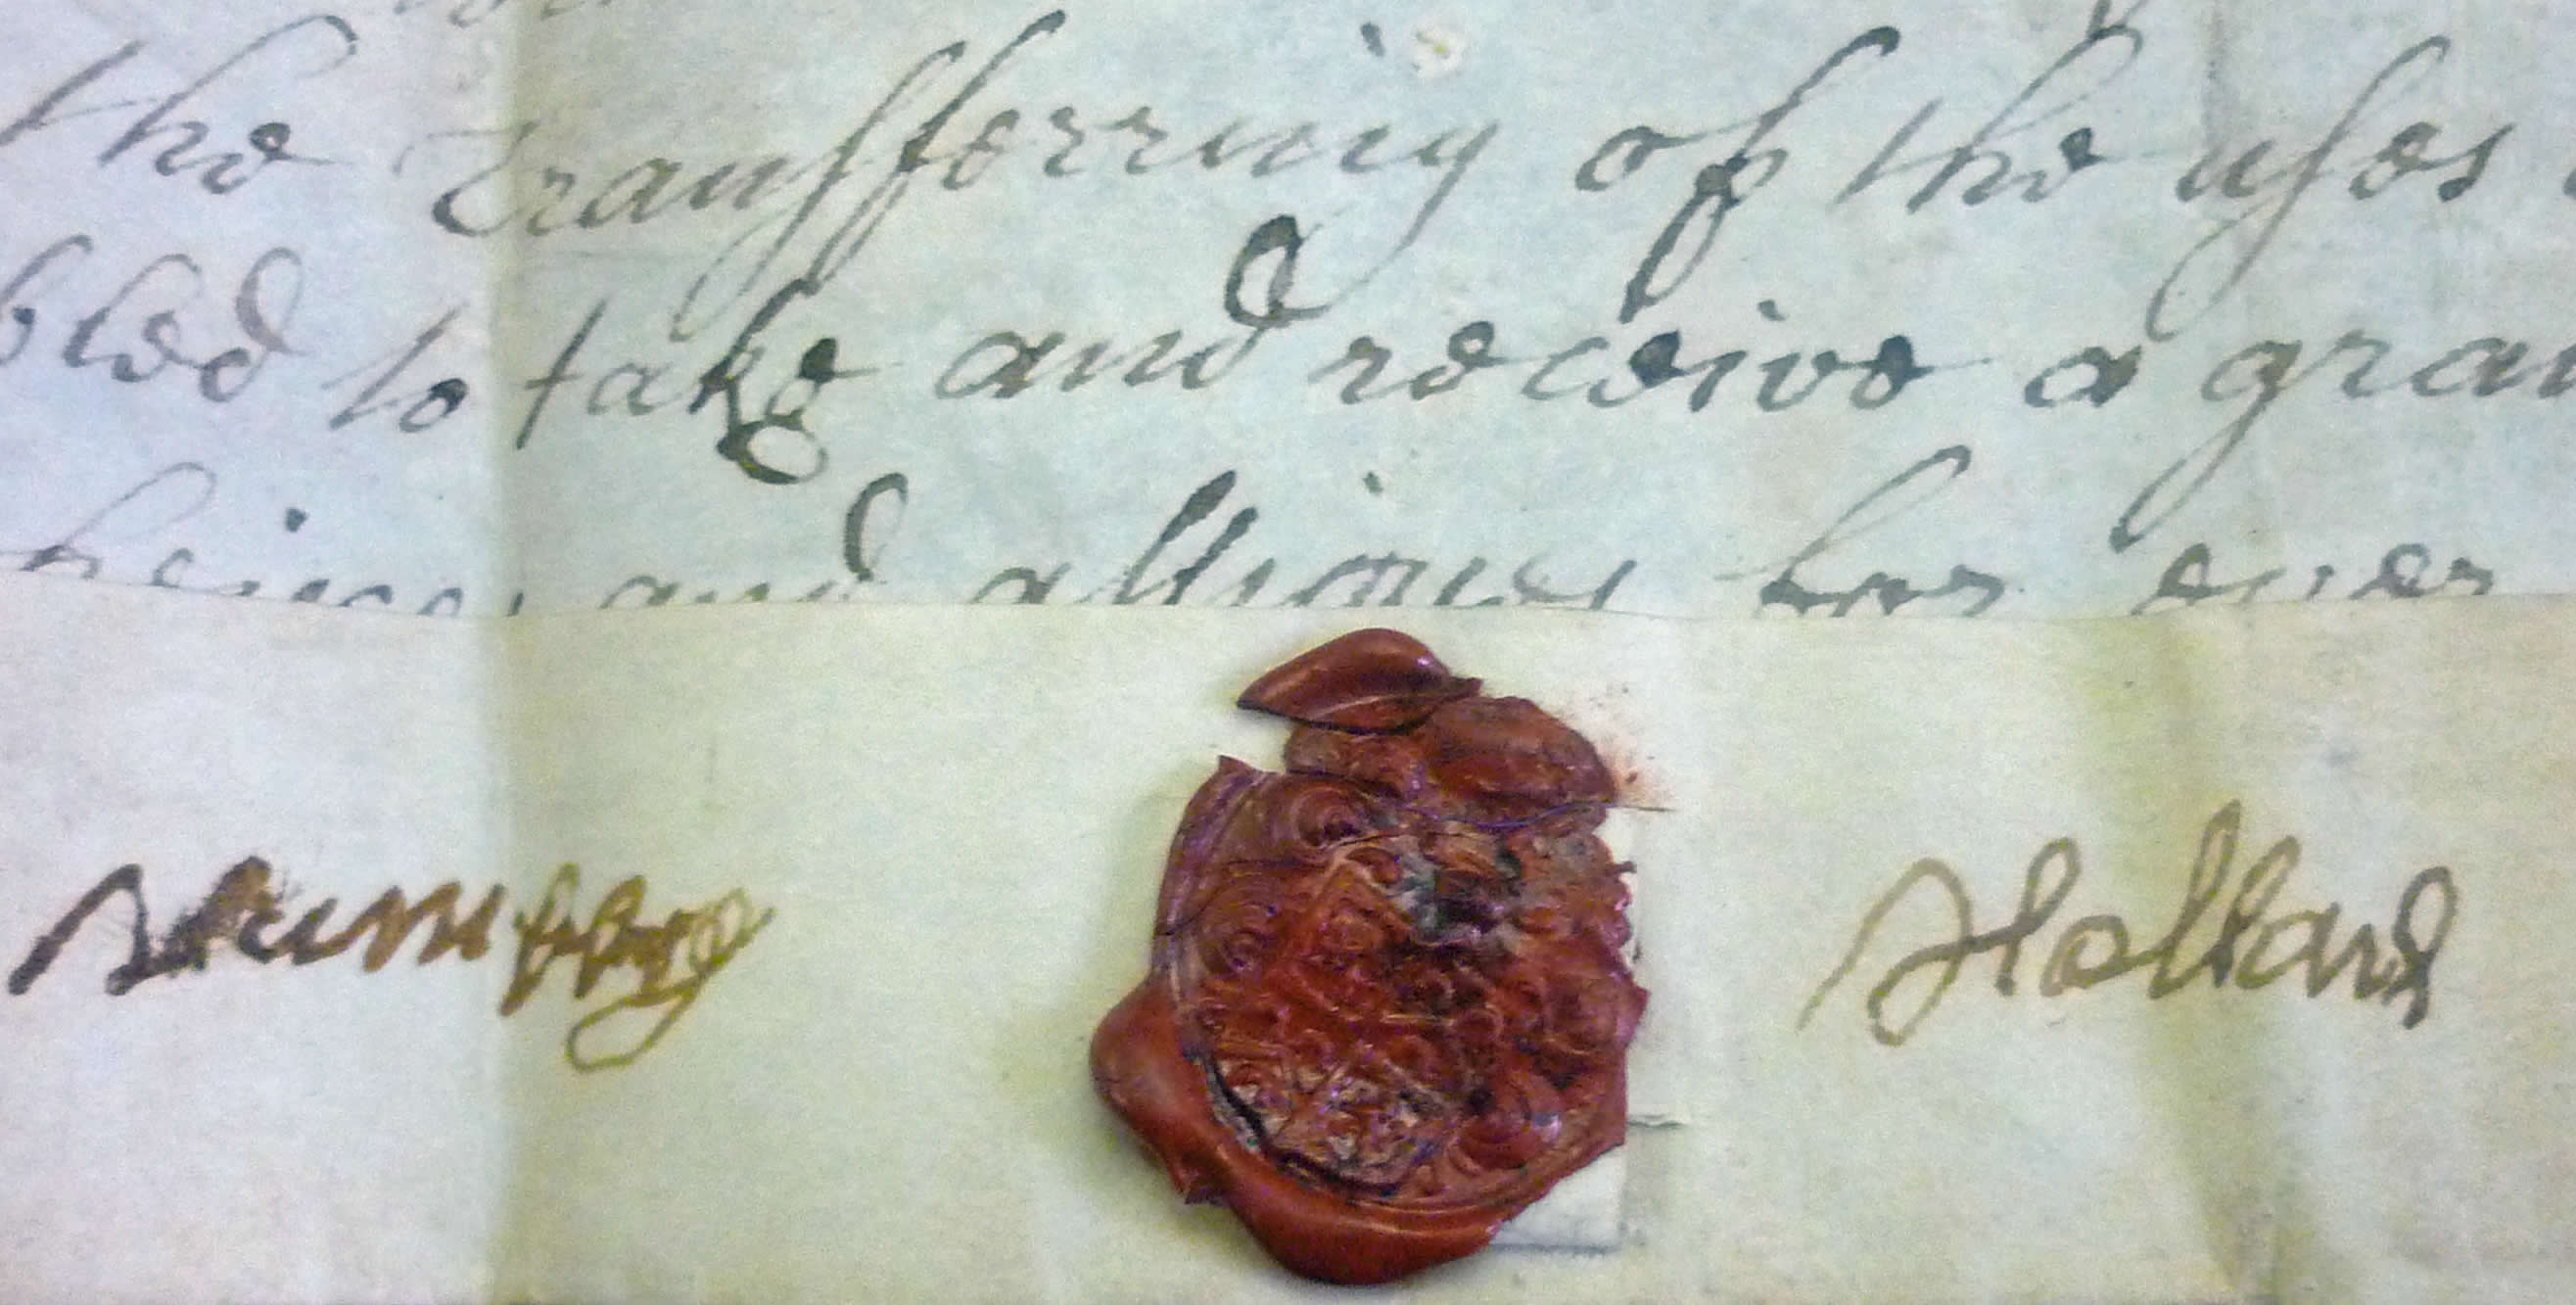 the transferring of the uses
bled to take and receive a gran
heires and assignes for ever
Humphry Holland